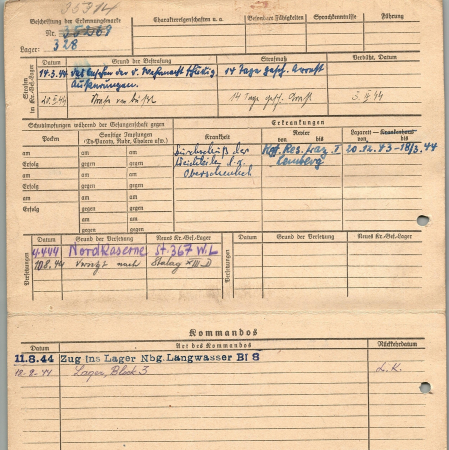 35714
Beschriftung der Erkennungsmarke
Nr.
Lager: 328
Charaktereigenschaften u. a.
Besondere Fähigkeiten
Sprachkenntnisse
Führung
Strafen im Kr.-Gef.-Lager
Datum
Grund der Bestrafung
Strafmaß
Verbüßt, Datum
14.3.44 der v. Wehrmacht
14 Tage gesch. Arrest
Äußerungen.
14 Tage gesch. Arrest
3. 44
Schutzimpfungen während der Gefangenschaft gegen
Erkrankungen
Pocken
Sonstige Impfungen
(Ty.-Paraty., Ruhr, Cholera usw.)
Krankheit
Revier
von bis
Lazarett — Krankenhaus
von bis
am am gegen
Erfolg gegen
am am gegen
Erfolg gegen
am am gegen
Erfolg gegen
am
gegen
Durchschuß des
Oberschenkel
Kgf. Res. Laz. I
Lemberg
20.12.43-18/3.44
Versetzungen
Datum
Grund der Versetzung
Neues Kr.-Gef.-Lager
Datum
Grund der Versetzung
Neues Kr.-Gef.-Lager
4.4.44 Nordkaserne St. 367 W.L
10.8.44 Versetzt nach Stalag XIII D
Kommandos
Datum
Art des Kommandos
Rückkehrdatum
11.8.44 Zug ins Lager Nbg. Langwasser BI S
Lager, Block 3
L.K.